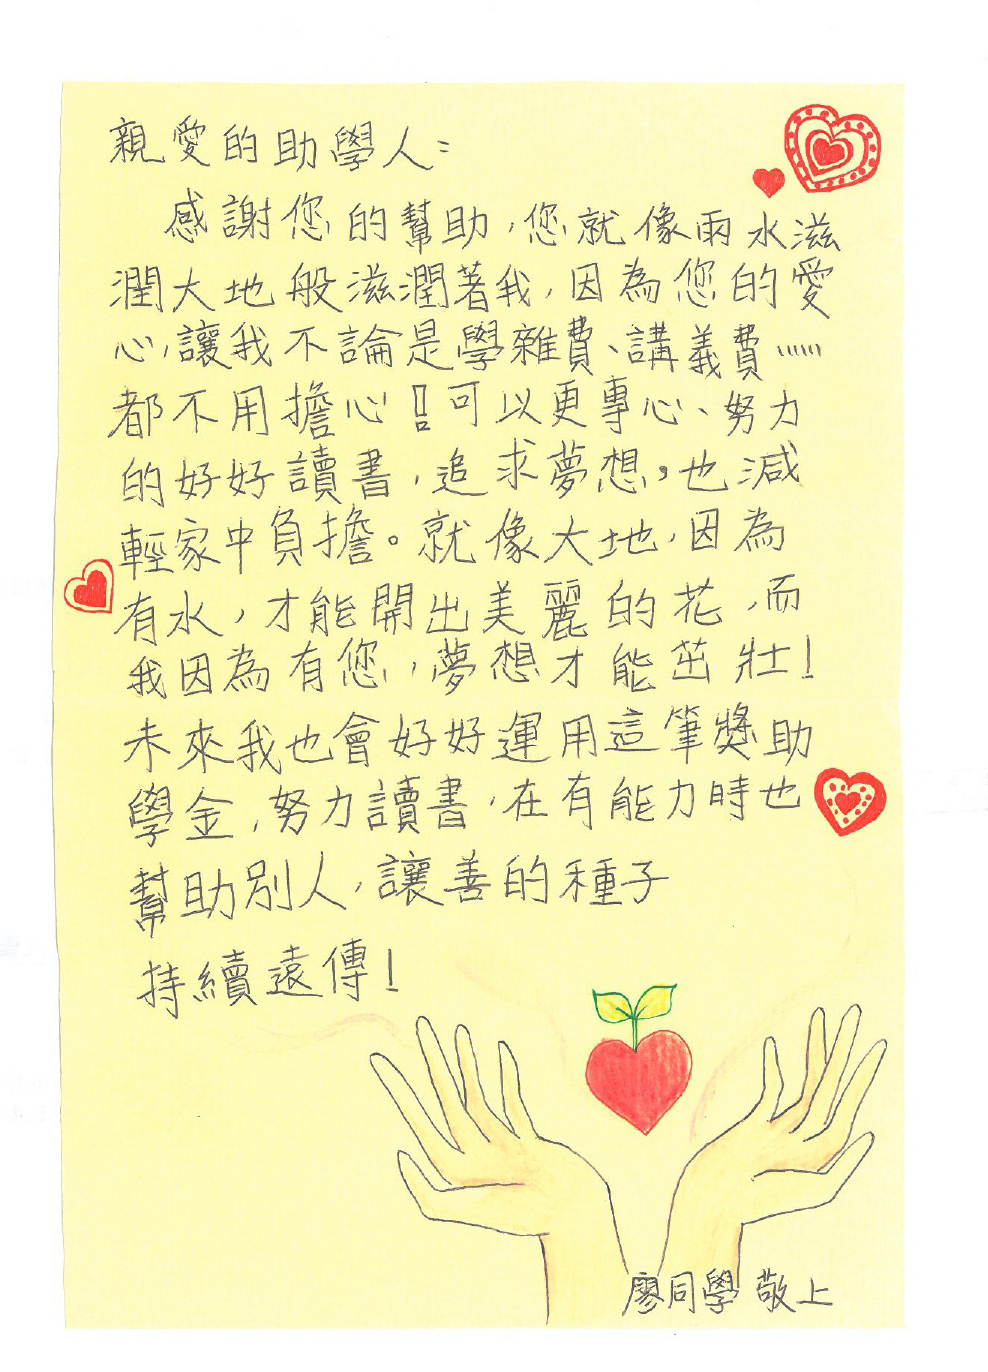 親愛的助學人:
感謝您的幫助,您就像雨水滋
潤大地般滋潤著我,因為您的愛
心,讓我不論是學雜費、講義費……
都不用擔心!!可以更專心、努力
的好好讀書,追求夢想,也減
輕家中負擔。就像大地,因為
有水,才能開出美麗的花,而
我因為有您,夢想才能茁壯!
未來我也會好好運用這筆獎助
學金,努力讀書,在有能力時也
幫助別人,讓善的種子
持續遠傳!
廖同學 敬上